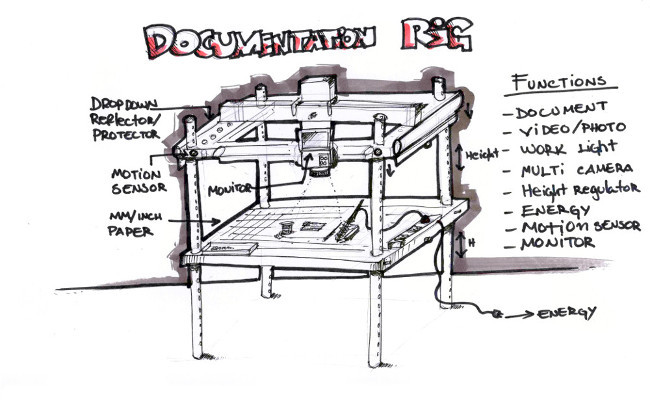 DOCUMENTATION RIG
DROPDOWN
REFLECTOR/
PROTECTOR
MOTION
SENSOR
MONITOR
MM/INCH
PAPER
Height
H
ENERGY
FUNCTIONS
- DOCUMENT
- VIDEO/PHOTO
- WORK Light
- MULTI CAMERA
- Height Regulator
- ENERGY
- MOTION SENSOR
- MONITOR